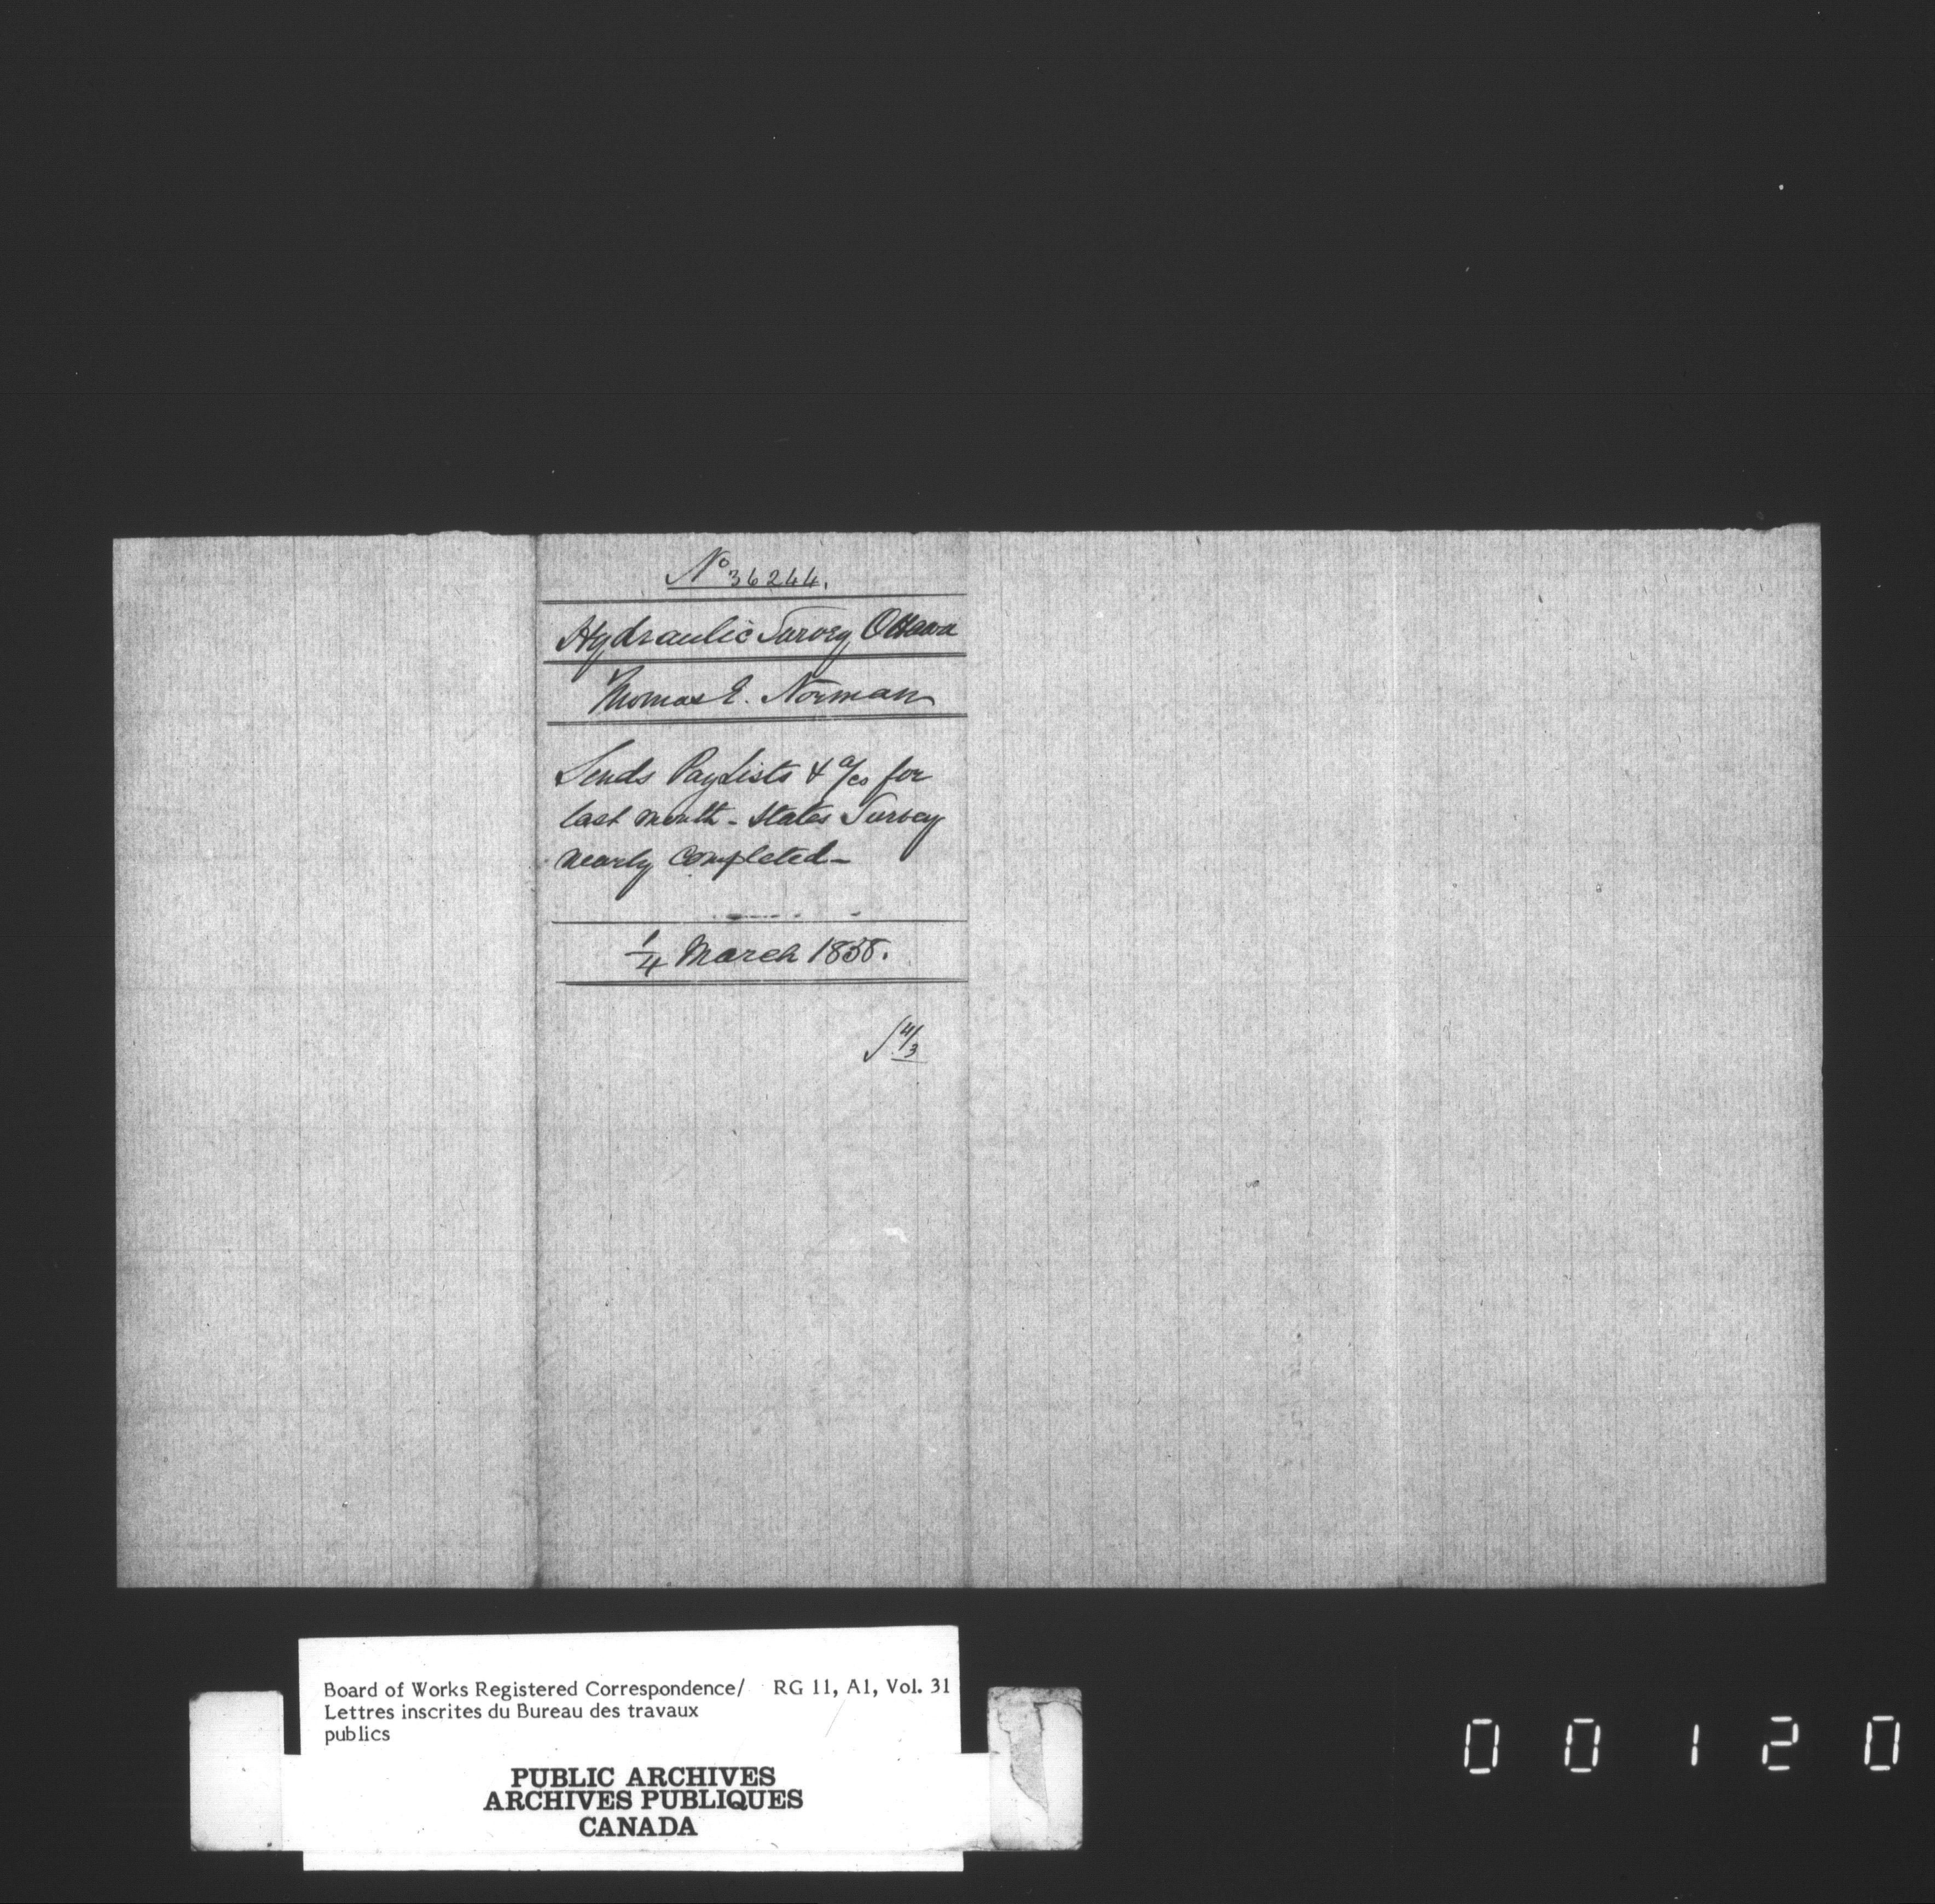 No 36244.
Hydraulic Survey Ottawa
Thomas E. Norman
Sends Pay Lists & a/cs for
last month - States Survey
nearly completed -
1/4 March 1858.
4/3
Board of Works Registered Correspondence/ RG 11, A1, Vol. 31
Lettres inscrites du Bureau des travaux
publics
PUBLIC ARCHIVES
ARCHIVES PUBLIQUES
CANADA
00120